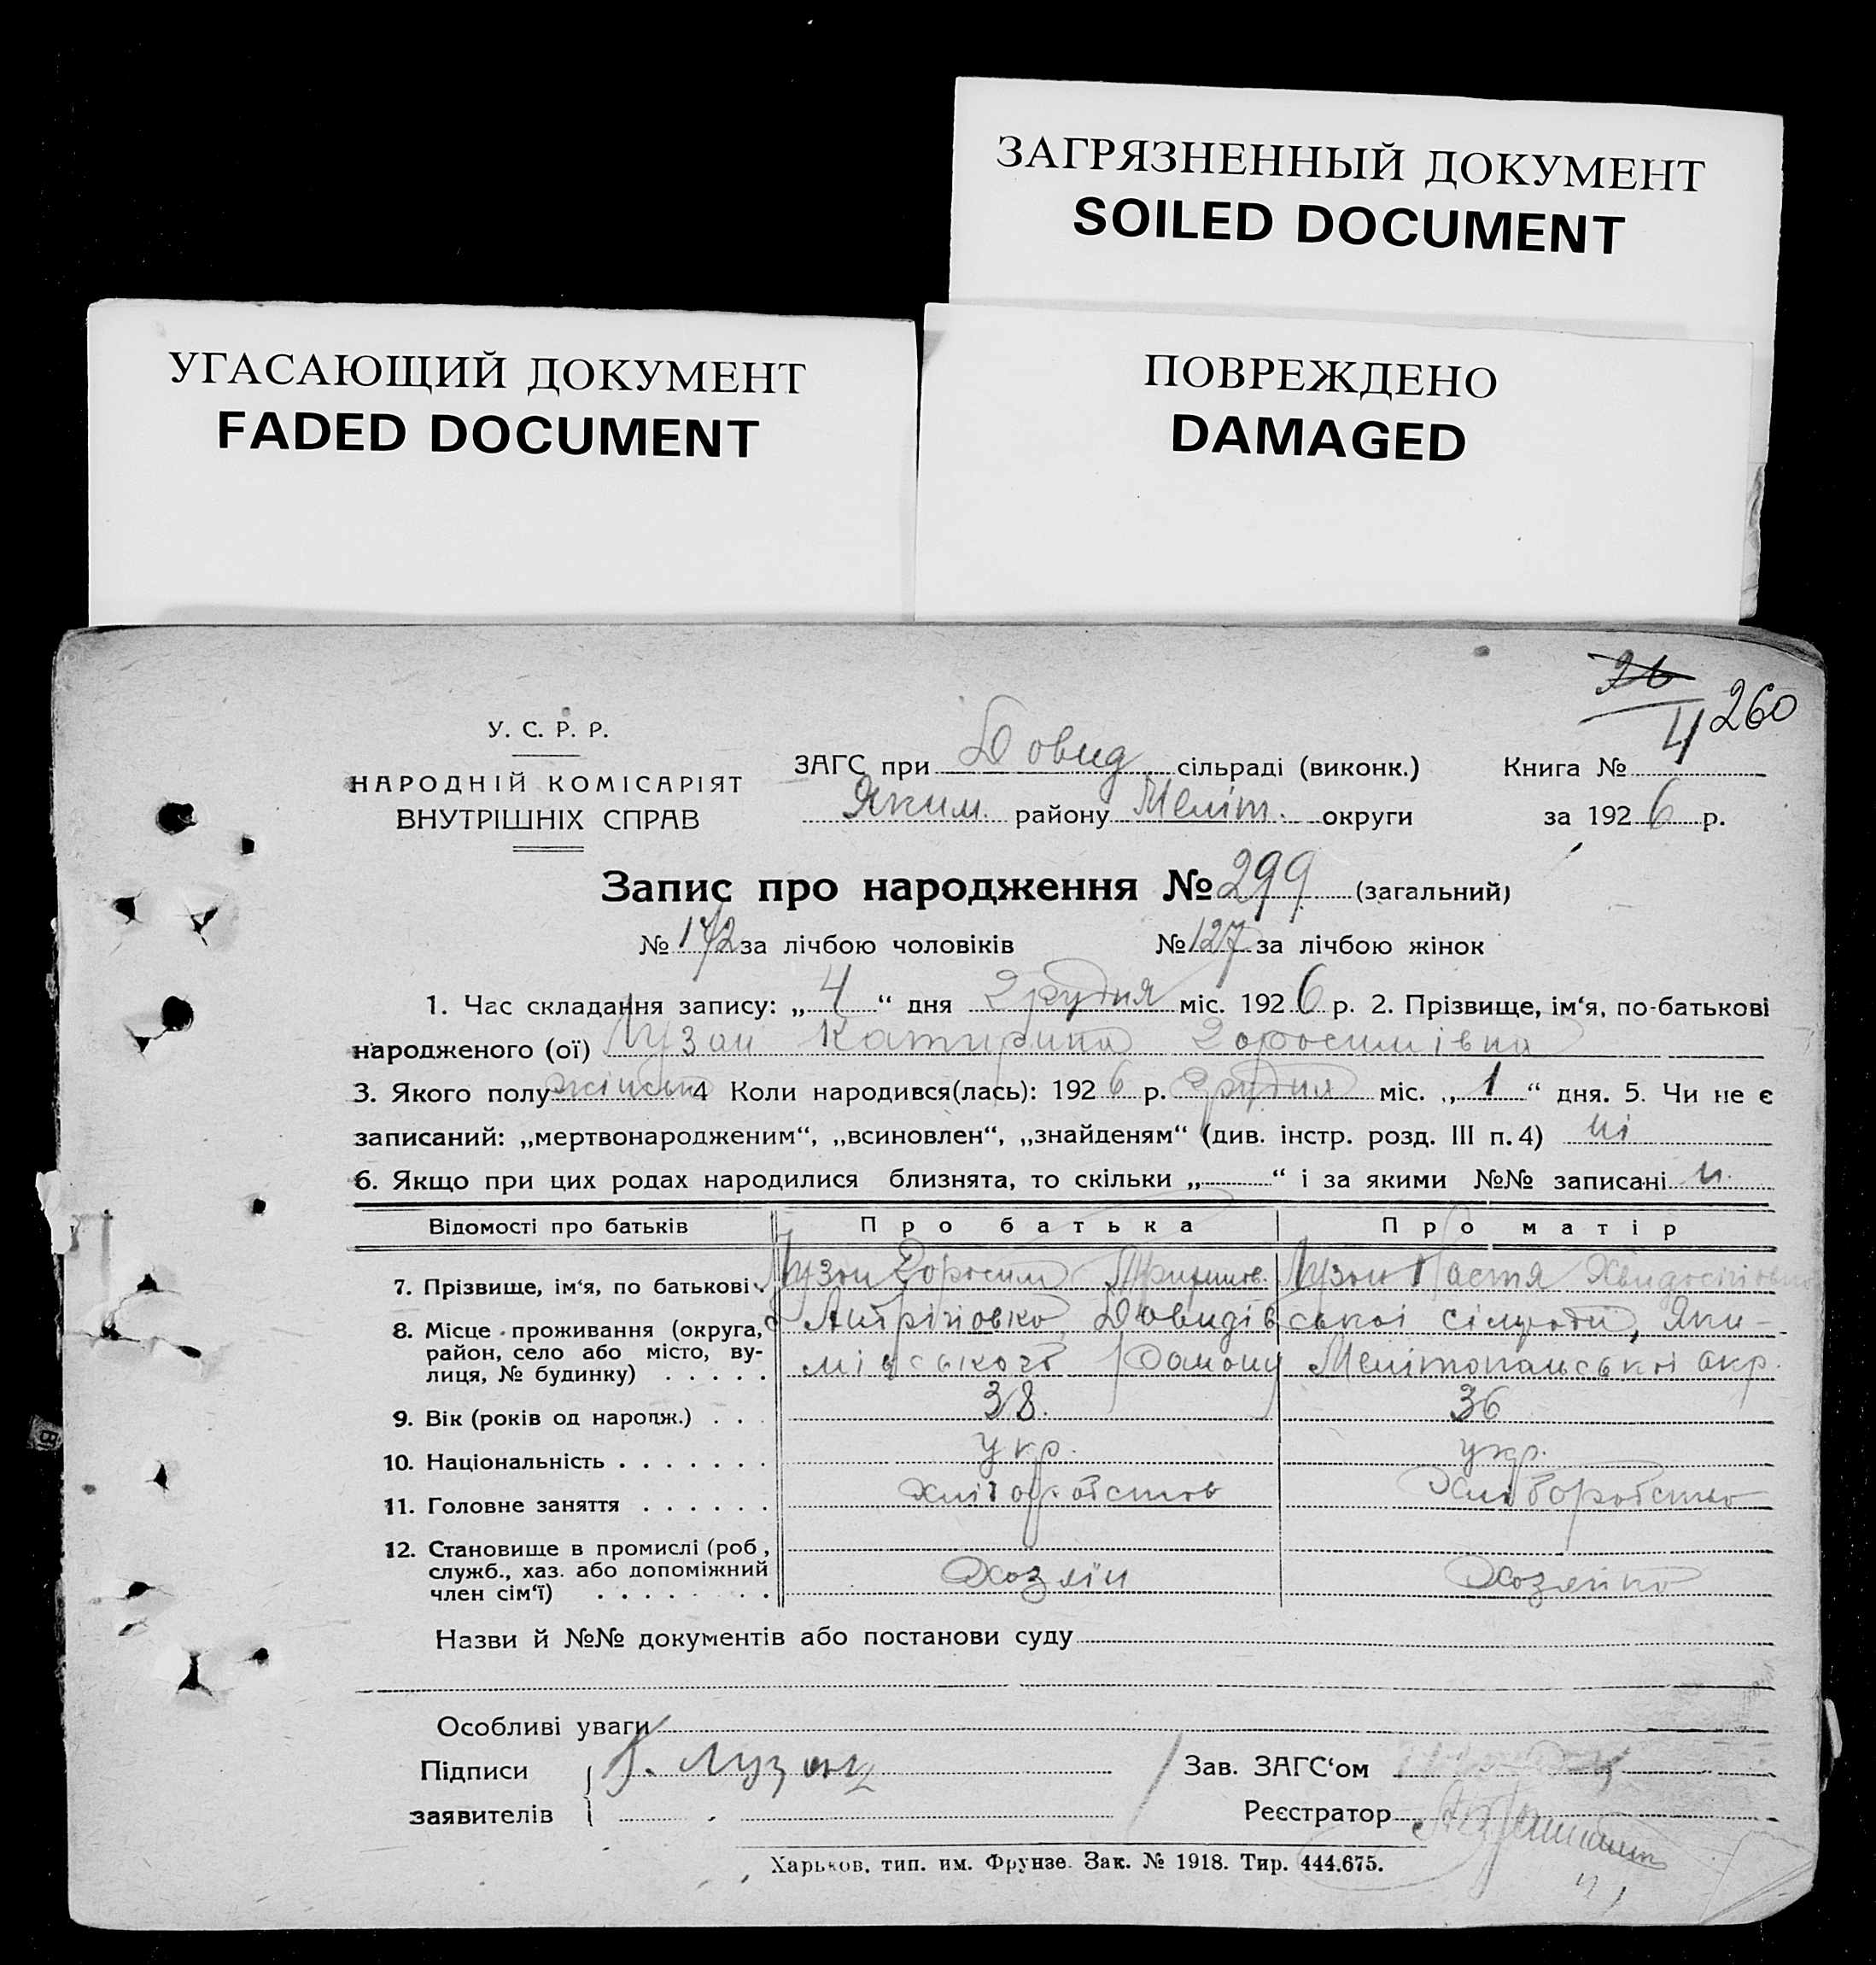 ЗАГРЯЗНЕННЫЙ ДОКУМЕНТ
SOILED DOCUMENT
УГАСАЮЩИЙ ДОКУМЕНТ
FADED DOCUMENT
ПОВРЕЖДЕНО
DAMAGED
26
4 260
У. С. Р. Р.
НАРОДНІЙ КОМІСАРІЯТ
ВНУТРІШНІХ СПРАВ
ЗАГС при Довид сільраді (виконк.) Книга №
Яким. району Меліт. округи за 1926 р.
Запис про народження № 299 (загальний)
№ 172 за лічбою чоловіків № 127 за лічбою жінок
1. Час складання запису: „4“ дня Грудня міс. 1926 р. 2. Прізвище, ім‘я, по-батькові
народженого (ої) Лузан Катирина Доросимівна
3. Якого полу жіньськ 4 Коли народився(лась): 1926 р. Грудня міс. „1“ дня. 5. Чи не є
записаний: „мертвонародженим“, „всиновлен“, „знайденям“ (див. інстр. розд. III п. 4) ні
6. Якщо при цих родах народилися близнята, то скільки „ “ і за якими №№ записані н.
Відомості про батьків Про батька Про матір
7. Прізвище, ім‘я, по батькові Лузан Доросим Лузан Настя
8. Місце проживання (округа, Довидівської сілради, Яки-
район, село або місто, ву- мівського Району Мелітопальської окр.
лиця, № будинку)
9. Вік (років од народж.) 38. 36
10. Національність укр. укр.
11. Головне заняття хліборобство Хліборобство
12. Становище в промислі (роб,
служб., хаз. або допоміжний Хозяїн Хозяйка
член сім‘ї)
Назви й №№ документів або постанови суду
Особливі уваги
Підписи Лузан Зав. ЗАГС‘ом
заявителів Реєстратор
Харьков, тип. им. Фрунзе. Зак. № 1918. Тир. 444.675.